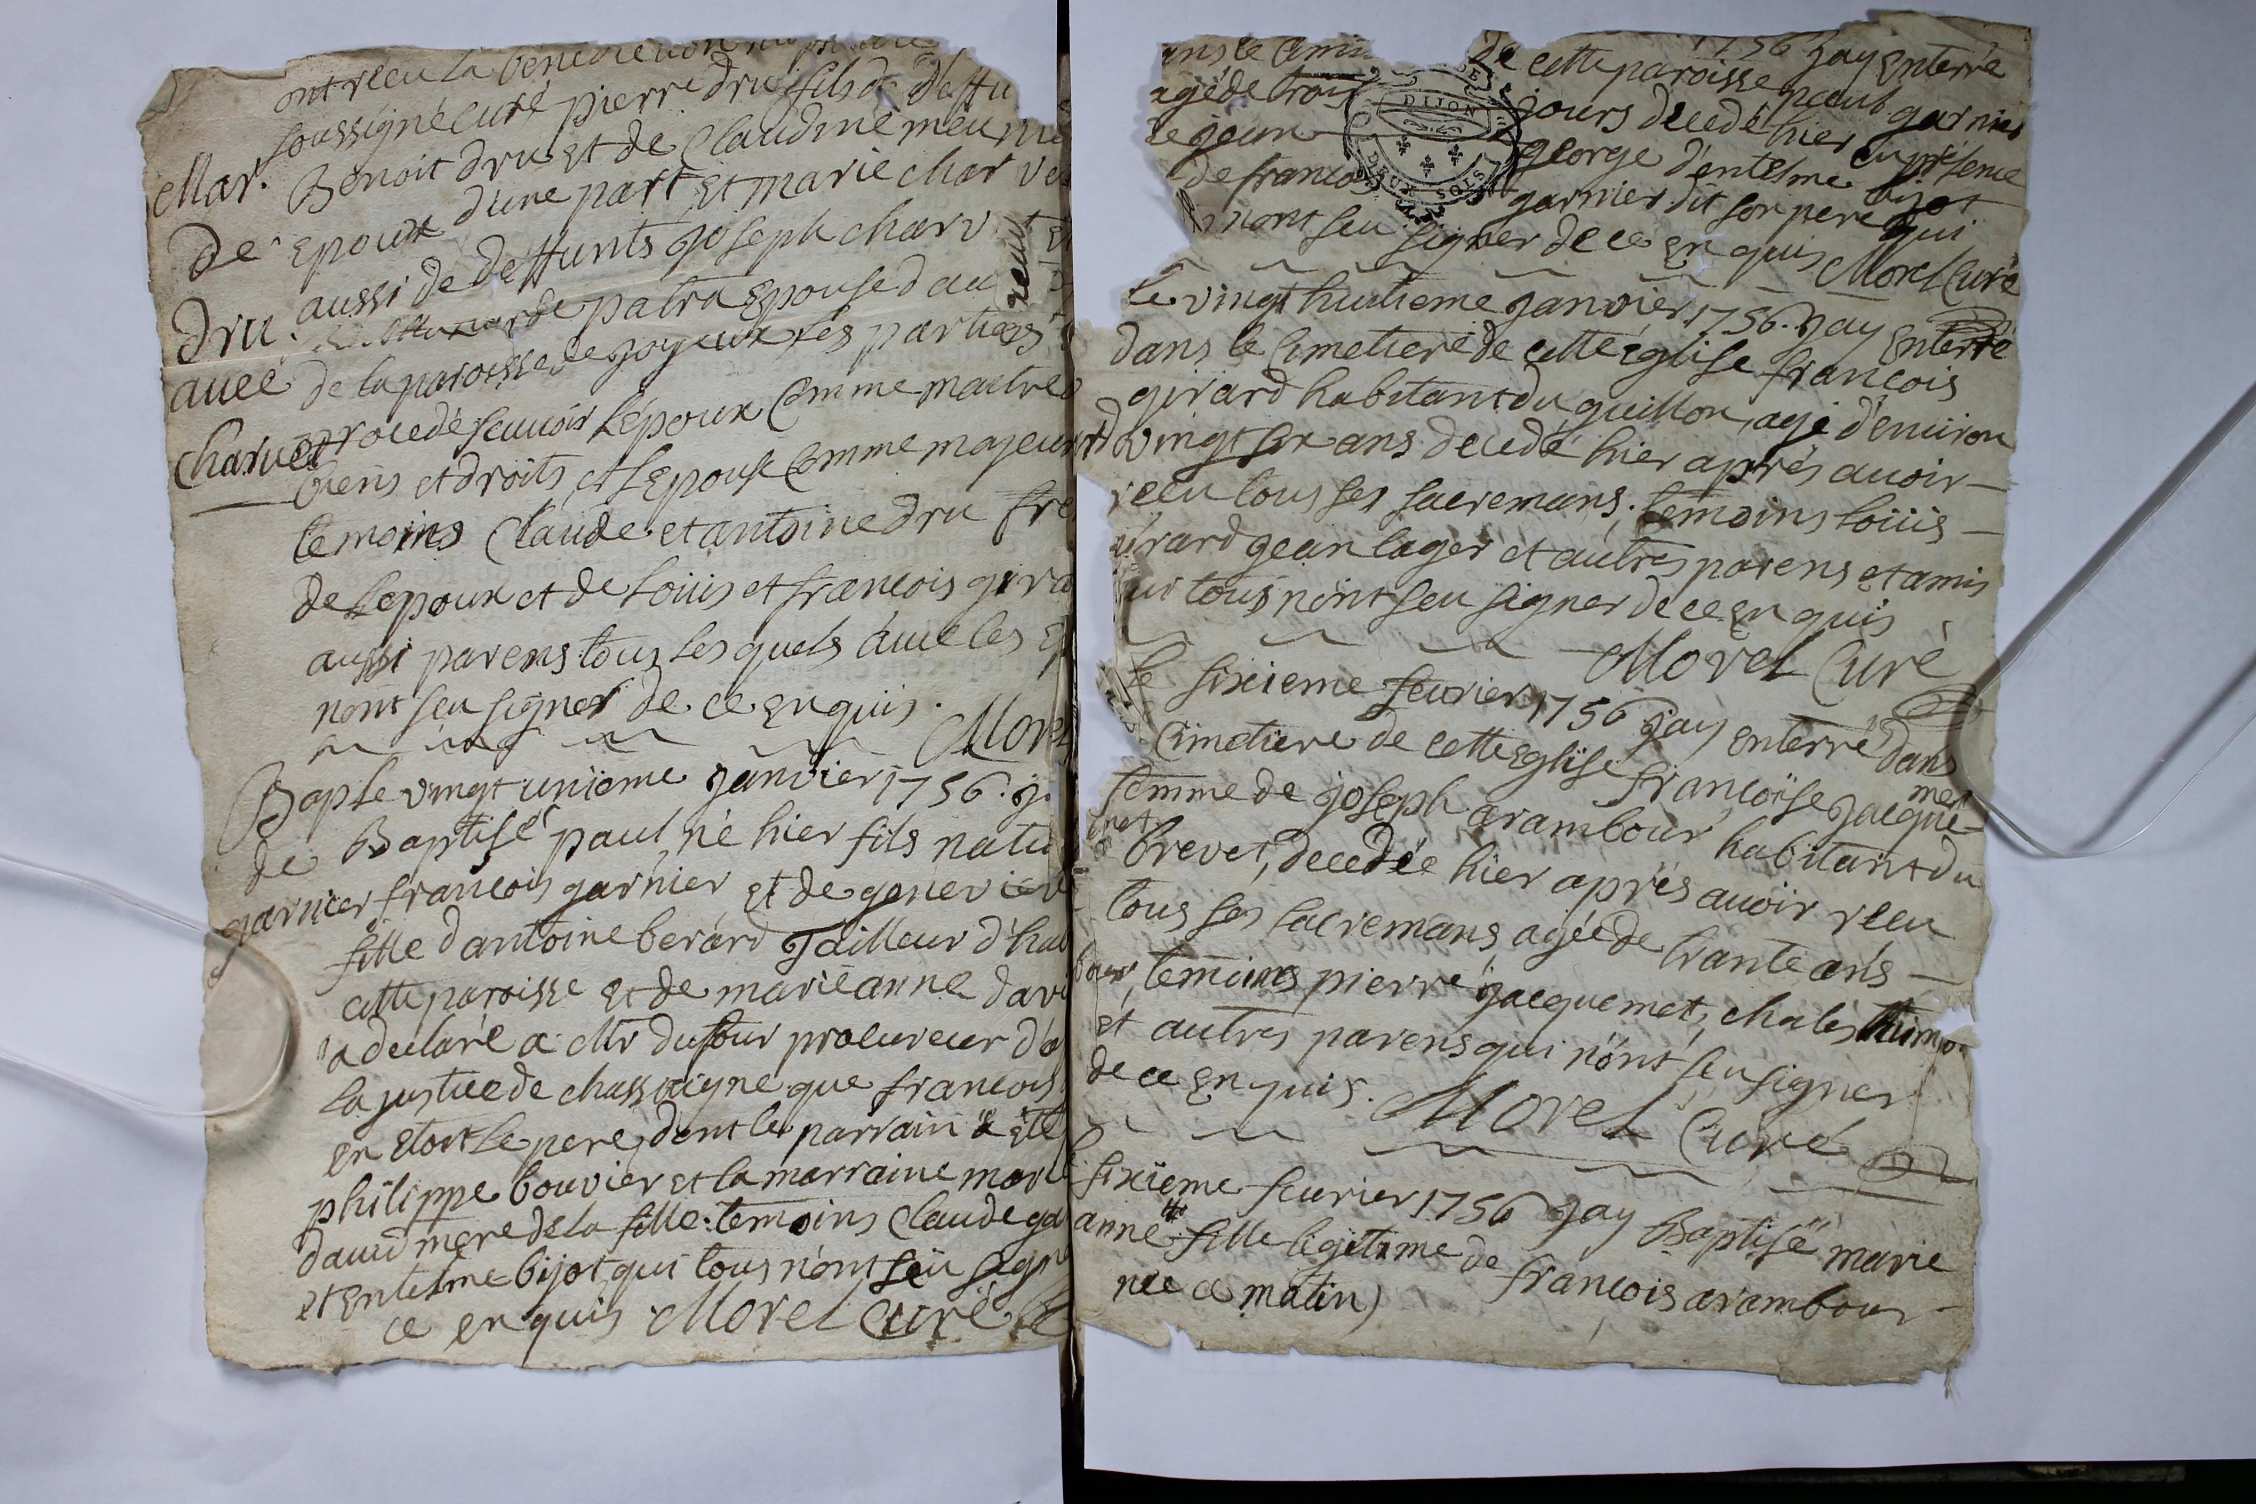 ont recu la benediction nuptiale
soussigné curé pierre dru fils de deffu
Mar. Benoit dru et de Claudine meunie
De epoux d'une part et marie charve
aussi de deffunts joseph charv
dru. de patra Epouse d au
avec de la paroisse de joyeux les parties
charvet procedé scauoir l'époux Comme maitre
biens et droits et l'Epouse Comme majeur
temoins Claude et antoine dru fre
de l'epoux et de loüis et francois gira
aussi parens tous les quels avec les Ep
n'ont seu signer de ce enquis. Morel
Bap le vingt unieme janvier 1756. j
de Baptisé paul né hier fils natu
garnier francois garnier et de genevieve
fille d'antoine berard Tailleur d'hab
cette paroisse et de marie anne davi
a declaré a Mr dufour procureur d'o
la justice de chassaigne que francois
en etoit le pere, dont le parrain a été
philippe bouvier et la marraine marie
david mere de la fille: temoins Claude ga
et Entelme bijot qui tous n'ont sçu signe
ce enquis Morel Curé
1756 jay Enterré
ans le Cimi de cette paroisse paul garnier
agé de trois jours decedé hier en présence
de jean george d'entelme bijot
de francois garnier dit son pere qui
n'ont seu signer de ce enquis Morel Curé
DIJON
DEUX SOLS
le vingt huitieme janvier 1756. jay Enterré
dans le Cimetiere de cette Eglise francois
girard habitant du guillon, agé d'environ
vingt six ans decedé hier aprés avoir
recu tous ses sacremans; temoins loüis
girard jean lager et autres parens et amis
qui tous n'ont seu signer de ce enquis
Morel Curé
le sixieme fevrier 1756 jay enterré dans
Cimetiere de cette Eglise francoise jacque-
met
femme de joseph arambour habitant du
brevet, decedée hier aprés avoir recu
tous ses sacremans, agée de trante ans
temoins pierre jacquemet, chales
et autres parens qui n'ont seu signer
de ce enquis. Morel Curé
sixieme fevrier 1756 jay Baptisé marie
anne fille legitime de francois arambour
née ce matin)